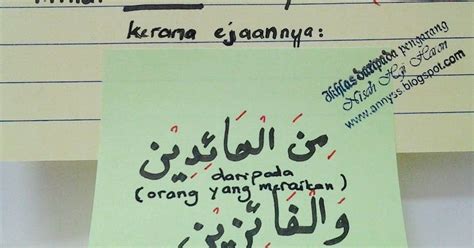 kerana ejaannya:
akhlas daripada pengarang
Nisah Haji Haron
www.annyss.blogspot.com
مِنَ الْعَائِدِيْن
daripada
(orang yang meraikan)
وَالْفَائِزِيْن